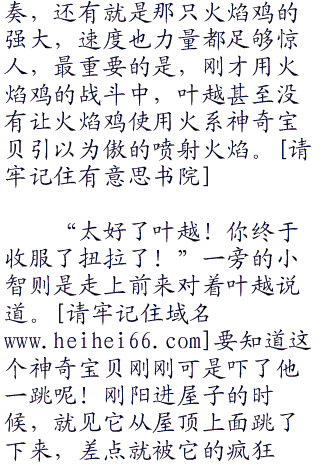 奏，还有就是那只火焰鸡的
强大，速度也力量都足够惊
人，最重要的是，刚才用火
焰鸡的战斗中，叶越甚至没
有让火焰鸡使用火系神奇宝
贝引以为傲的喷射火焰。[请
牢记住有意思书院]
“太好了叶越！你终于
收服了扭拉了！”一旁的小
智则是走上前来对着叶越说
道。[请牢记住域名
www.heihei66.com]要知道这
个神奇宝贝刚刚可是吓了他
一跳呢！刚阳进屋子的时
候，就见它从屋顶上面跳了
下来，差点就被它的疯狂